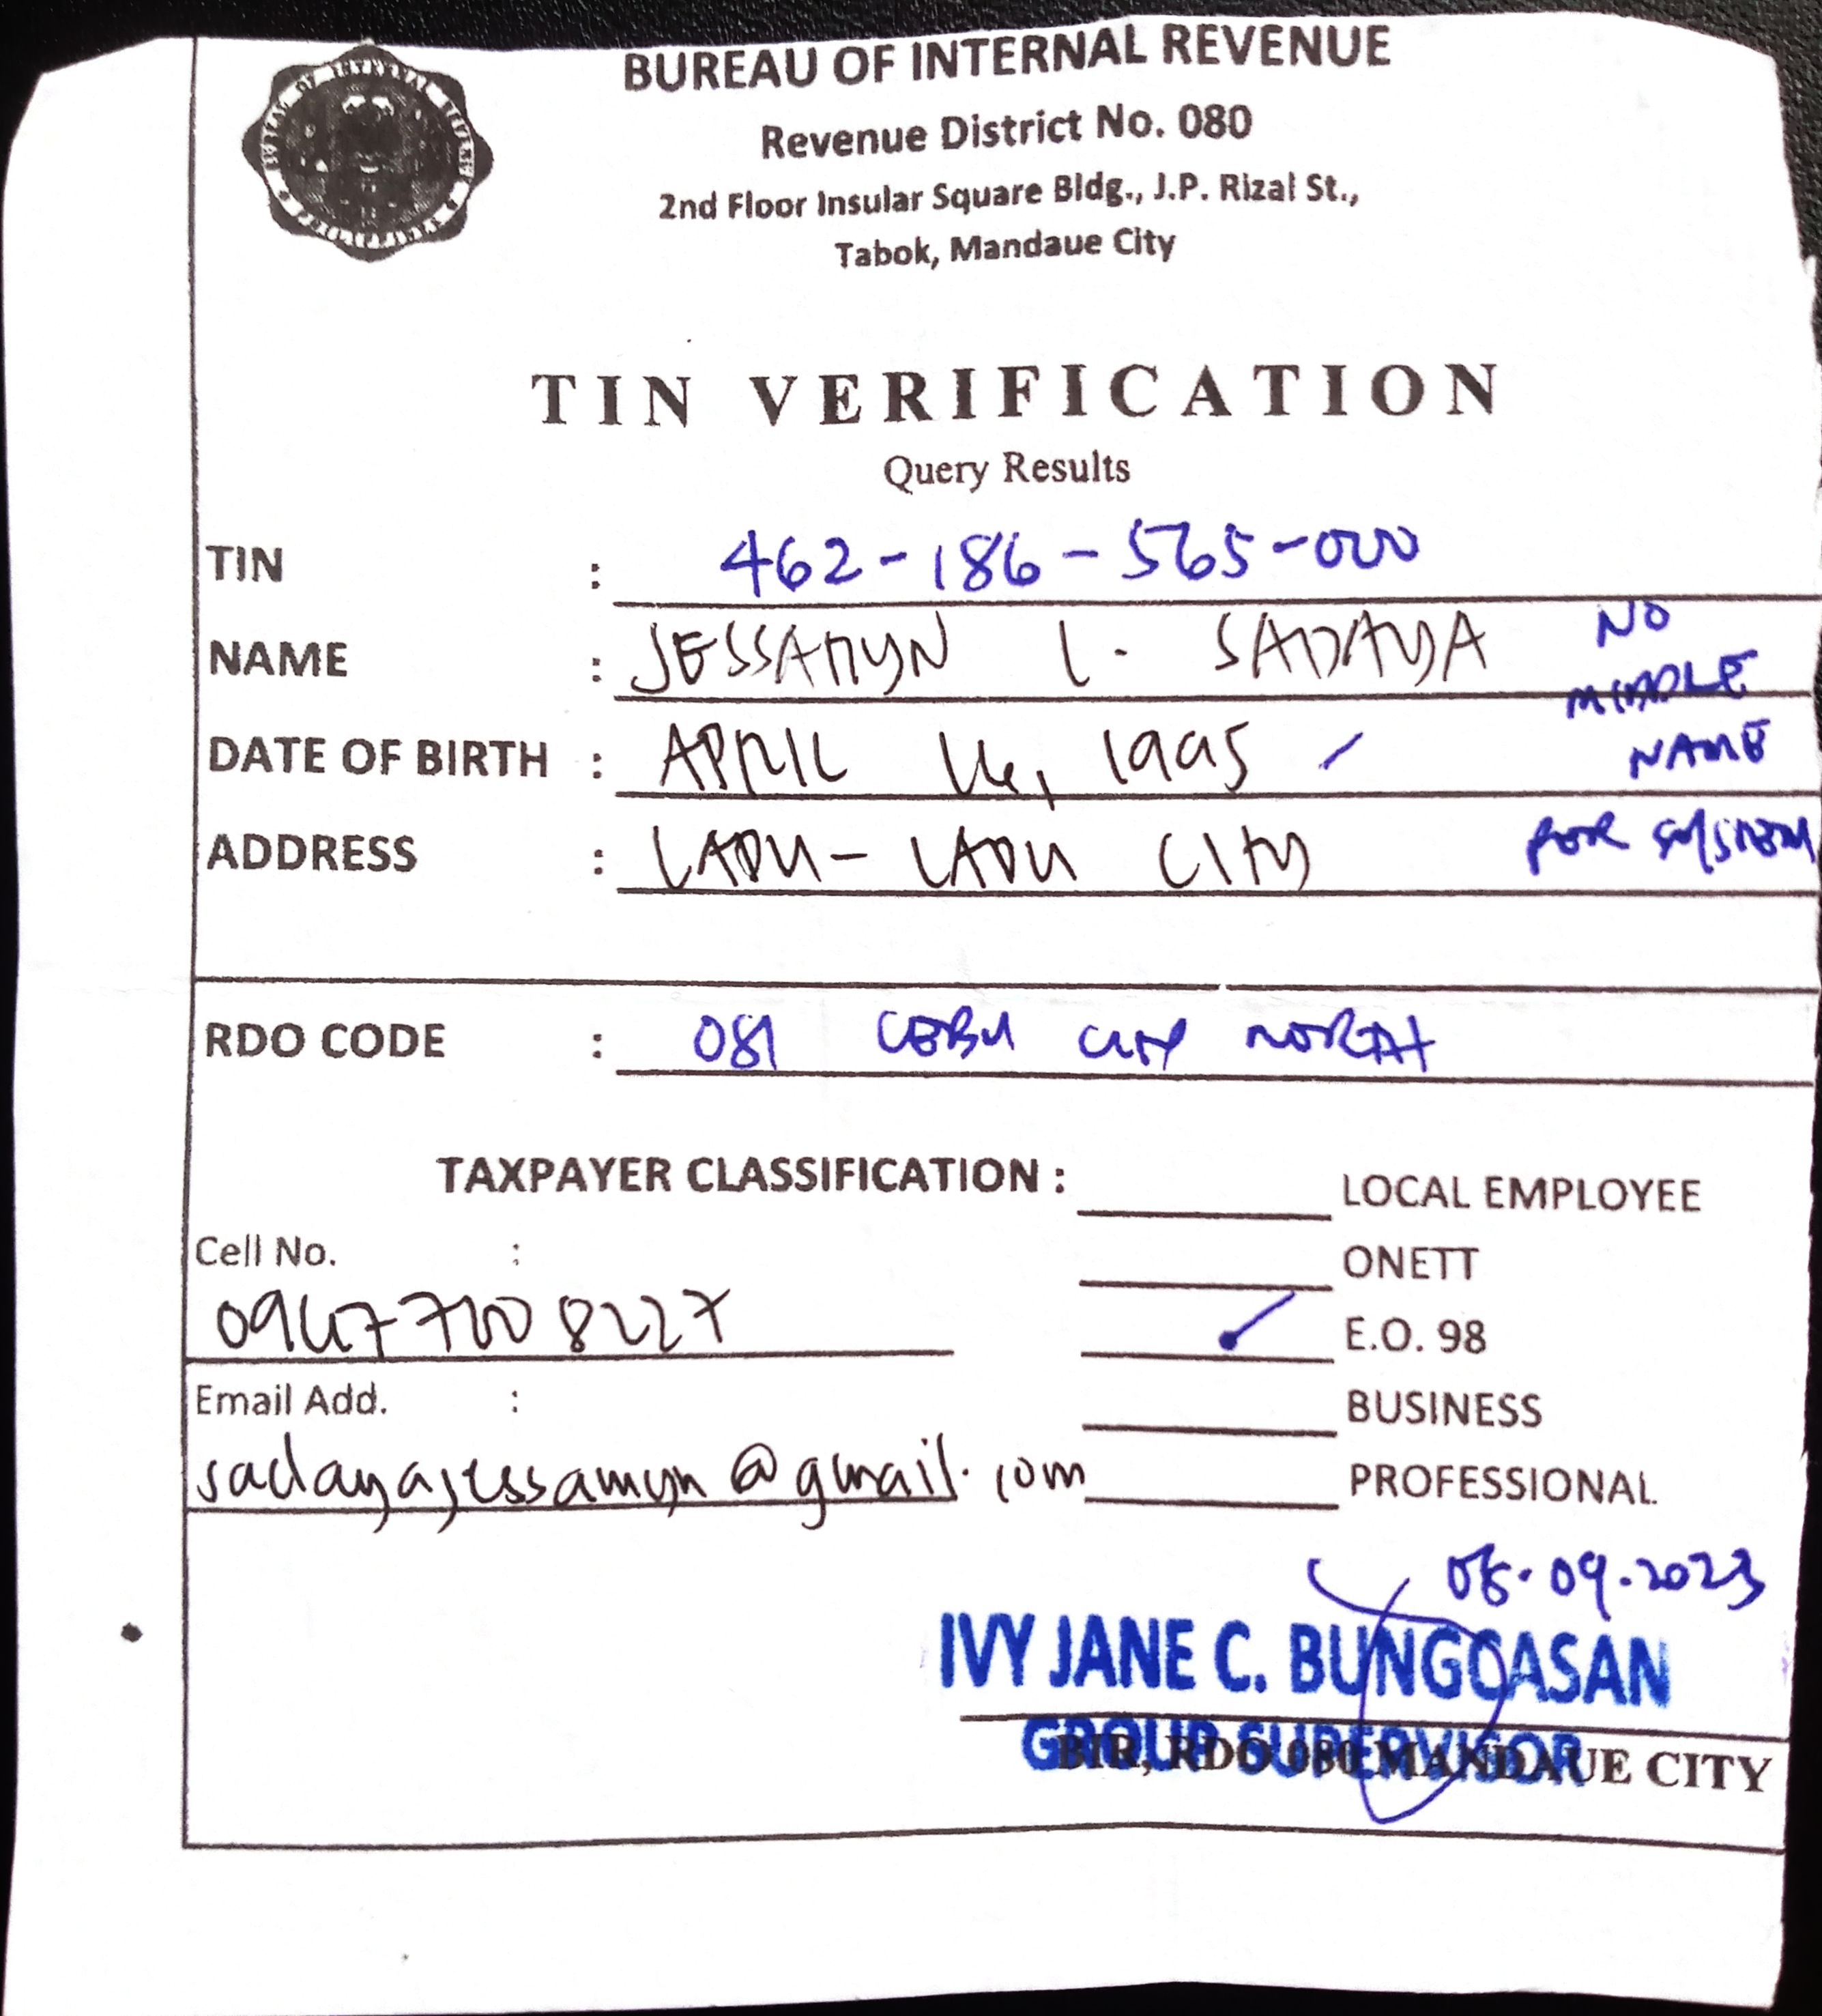 BUREAU OF INTERNAL REVENUE
Revenue District No. 080
2nd Floor Insular Square Bldg., J.P. Rizal St.,
Tabok, Mandaue City
TIN VERIFICATION
Query Results
TIN : 462-186-565-000
NAME : JESSAMYN L. SADAYA NO MIDDLE NAME
DATE OF BIRTH : APRIL 16, 1995
ADDRESS : LAPU-LAPU CITY PER SYSTEM
RDO CODE : 081 CEBU CITY NORTH
TAXPAYER CLASSIFICATION : LOCAL EMPLOYEE
Cell No. : ONETT
09677008227 E.O. 98
Email Add. : BUSINESS
sadayajessamyn@gmail.com PROFESSIONAL
09.2023
IVY JANE C. BUNGCASAN
GROUP SUPERVISOR
BIR, RDO 080 MANDAUE CITY